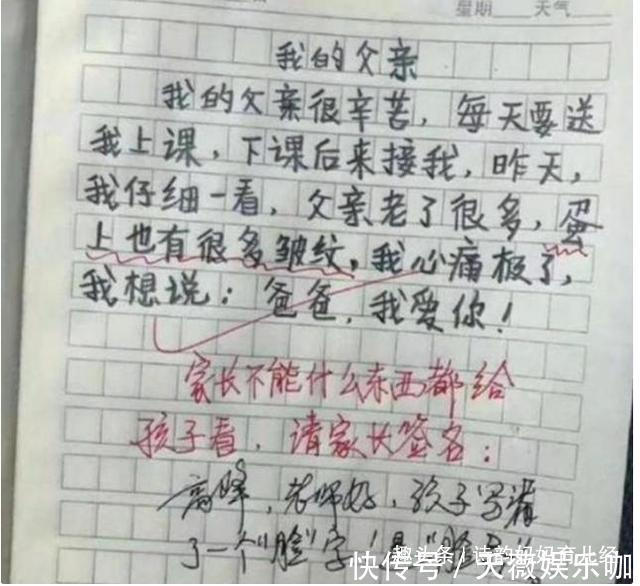 星期 天气
我的父亲
我的父亲很辛苦，每天要送
我上课，下课后来接我，昨天，
我仔细一看，父亲老了很多，蛋
上也有很多皱纹，我心痛极了，
我想说：爸爸，我爱你！
家长不能什么东西都给
孩子看，请家长签名：
高峰，老师好，孩子写漏
了一个"脸"字！是"脸蛋"
趣头条/诗韵妈妈育儿经
快传号/天薇娱乐咖